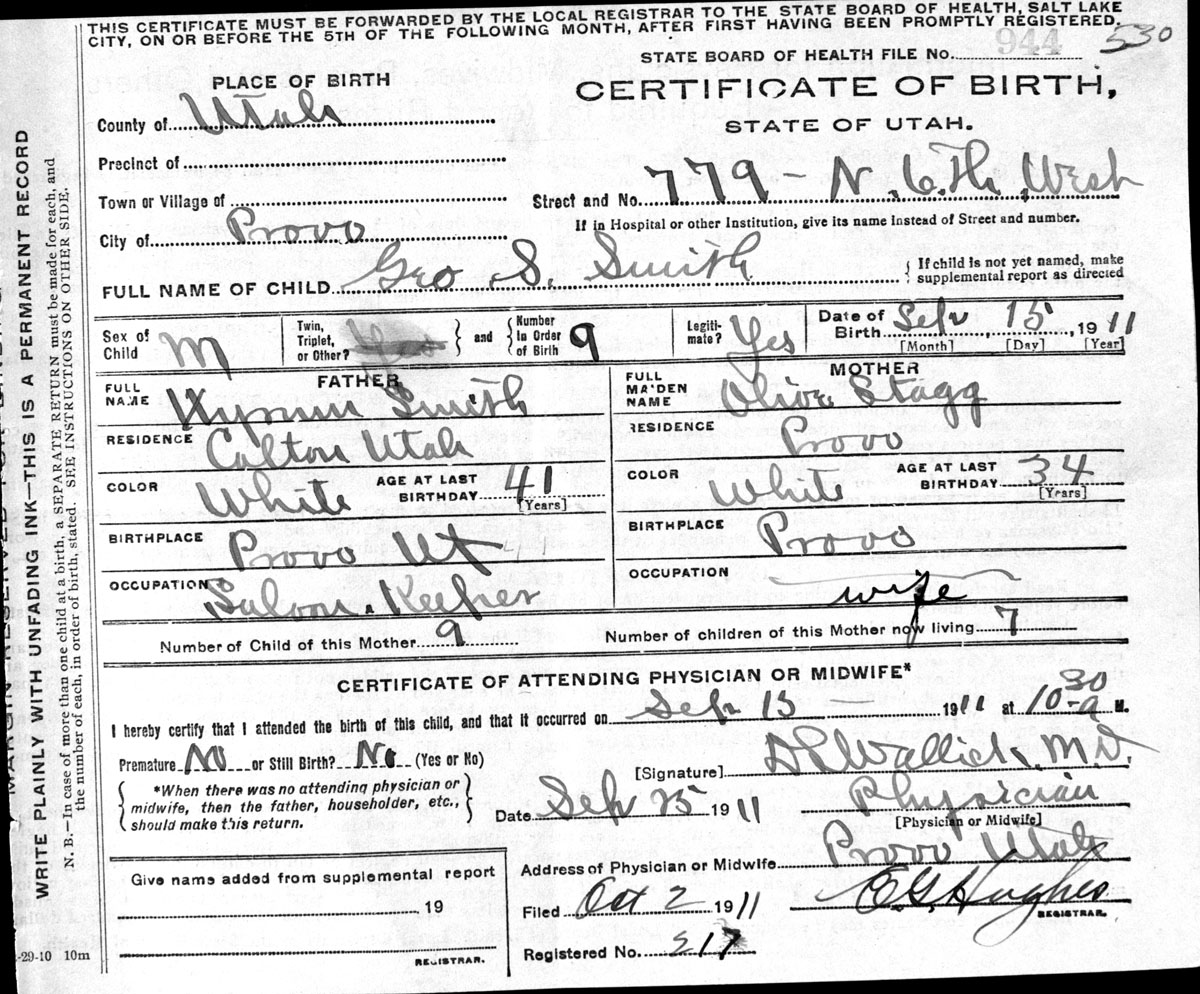 THIS CERTIFICATE MUST BE FORWARDED BY THE LOCAL REGISTRAR TO THE STATE BOARD OF HEALTH, SALT LAKE
CITY, ON OR BEFORE THE 5TH OF THE FOLLOWING MONTH, AFTER FIRST HAVING BEEN PROMPTLY REGISTERED.
530
STATE BOARD OF HEALTH FILE No. 944
PLACE OF BIRTH
CERTIFICATE OF BIRTH,
STATE OF UTAH.
County of Utah
Precinct of
Town or Village of
Street and No. 779 - N. 6.Th. West
If in Hospital or other Institution, give its name instead of Street and number.
City of Provo
FULL NAME OF CHILD Geo S. Smith
{ If child is not yet named, make
supplemental report as directed
Sex of Child M
Twin, Triplet, or Other? Yes
and
Number In Order of Birth 9
Legiti- mate? Yes
Date of Birth Sep 15, 1911
[Month] [Day] [Year]
FATHER
FULL NAME Smith
RESIDENCE Colton Utah
COLOR White
AGE AT LAST BIRTHDAY 41
[Years]
BIRTHPLACE Provo Ut
OCCUPATION Saloon Keeper
MOTHER
FULL MAIDEN NAME Olive Stagg
RESIDENCE Provo
COLOR White
AGE AT LAST BIRTHDAY 34
[Years]
BIRTHPLACE Provo
OCCUPATION wife
Number of Child of this Mother 9
Number of children of this Mother now living 7
CERTIFICATE OF ATTENDING PHYSICIAN OR MIDWIFE*
I hereby certify that I attended the birth of this child, and that it occurred on Sep 15 — 1911 at 10-30 a M.
Premature No or Still Birth? No (Yes or No)
[Signature] Wallick, M.D.
*When there was no attending physician or
midwife, then the father, householder, etc.,
should make this return.
Date Sep 25 1911
Physician
[Physician or Midwife]
Address of Physician or Midwife Provo Utah
Filed Oct 2 1911
E G Hughes
REGISTRAR.
Registered No. 217
Give name added from supplemental report
19
REGISTRAR.
-29-10 10m
WRITE PLAINLY WITH UNFADING INK—THIS IS A PERMANENT RECORD
N. B.—In case of more than one child at a birth, a SEPARATE RETURN must be made for each, and
the number of each, in order of birth, stated. SEE INSTRUCTIONS ON OTHER SIDE.